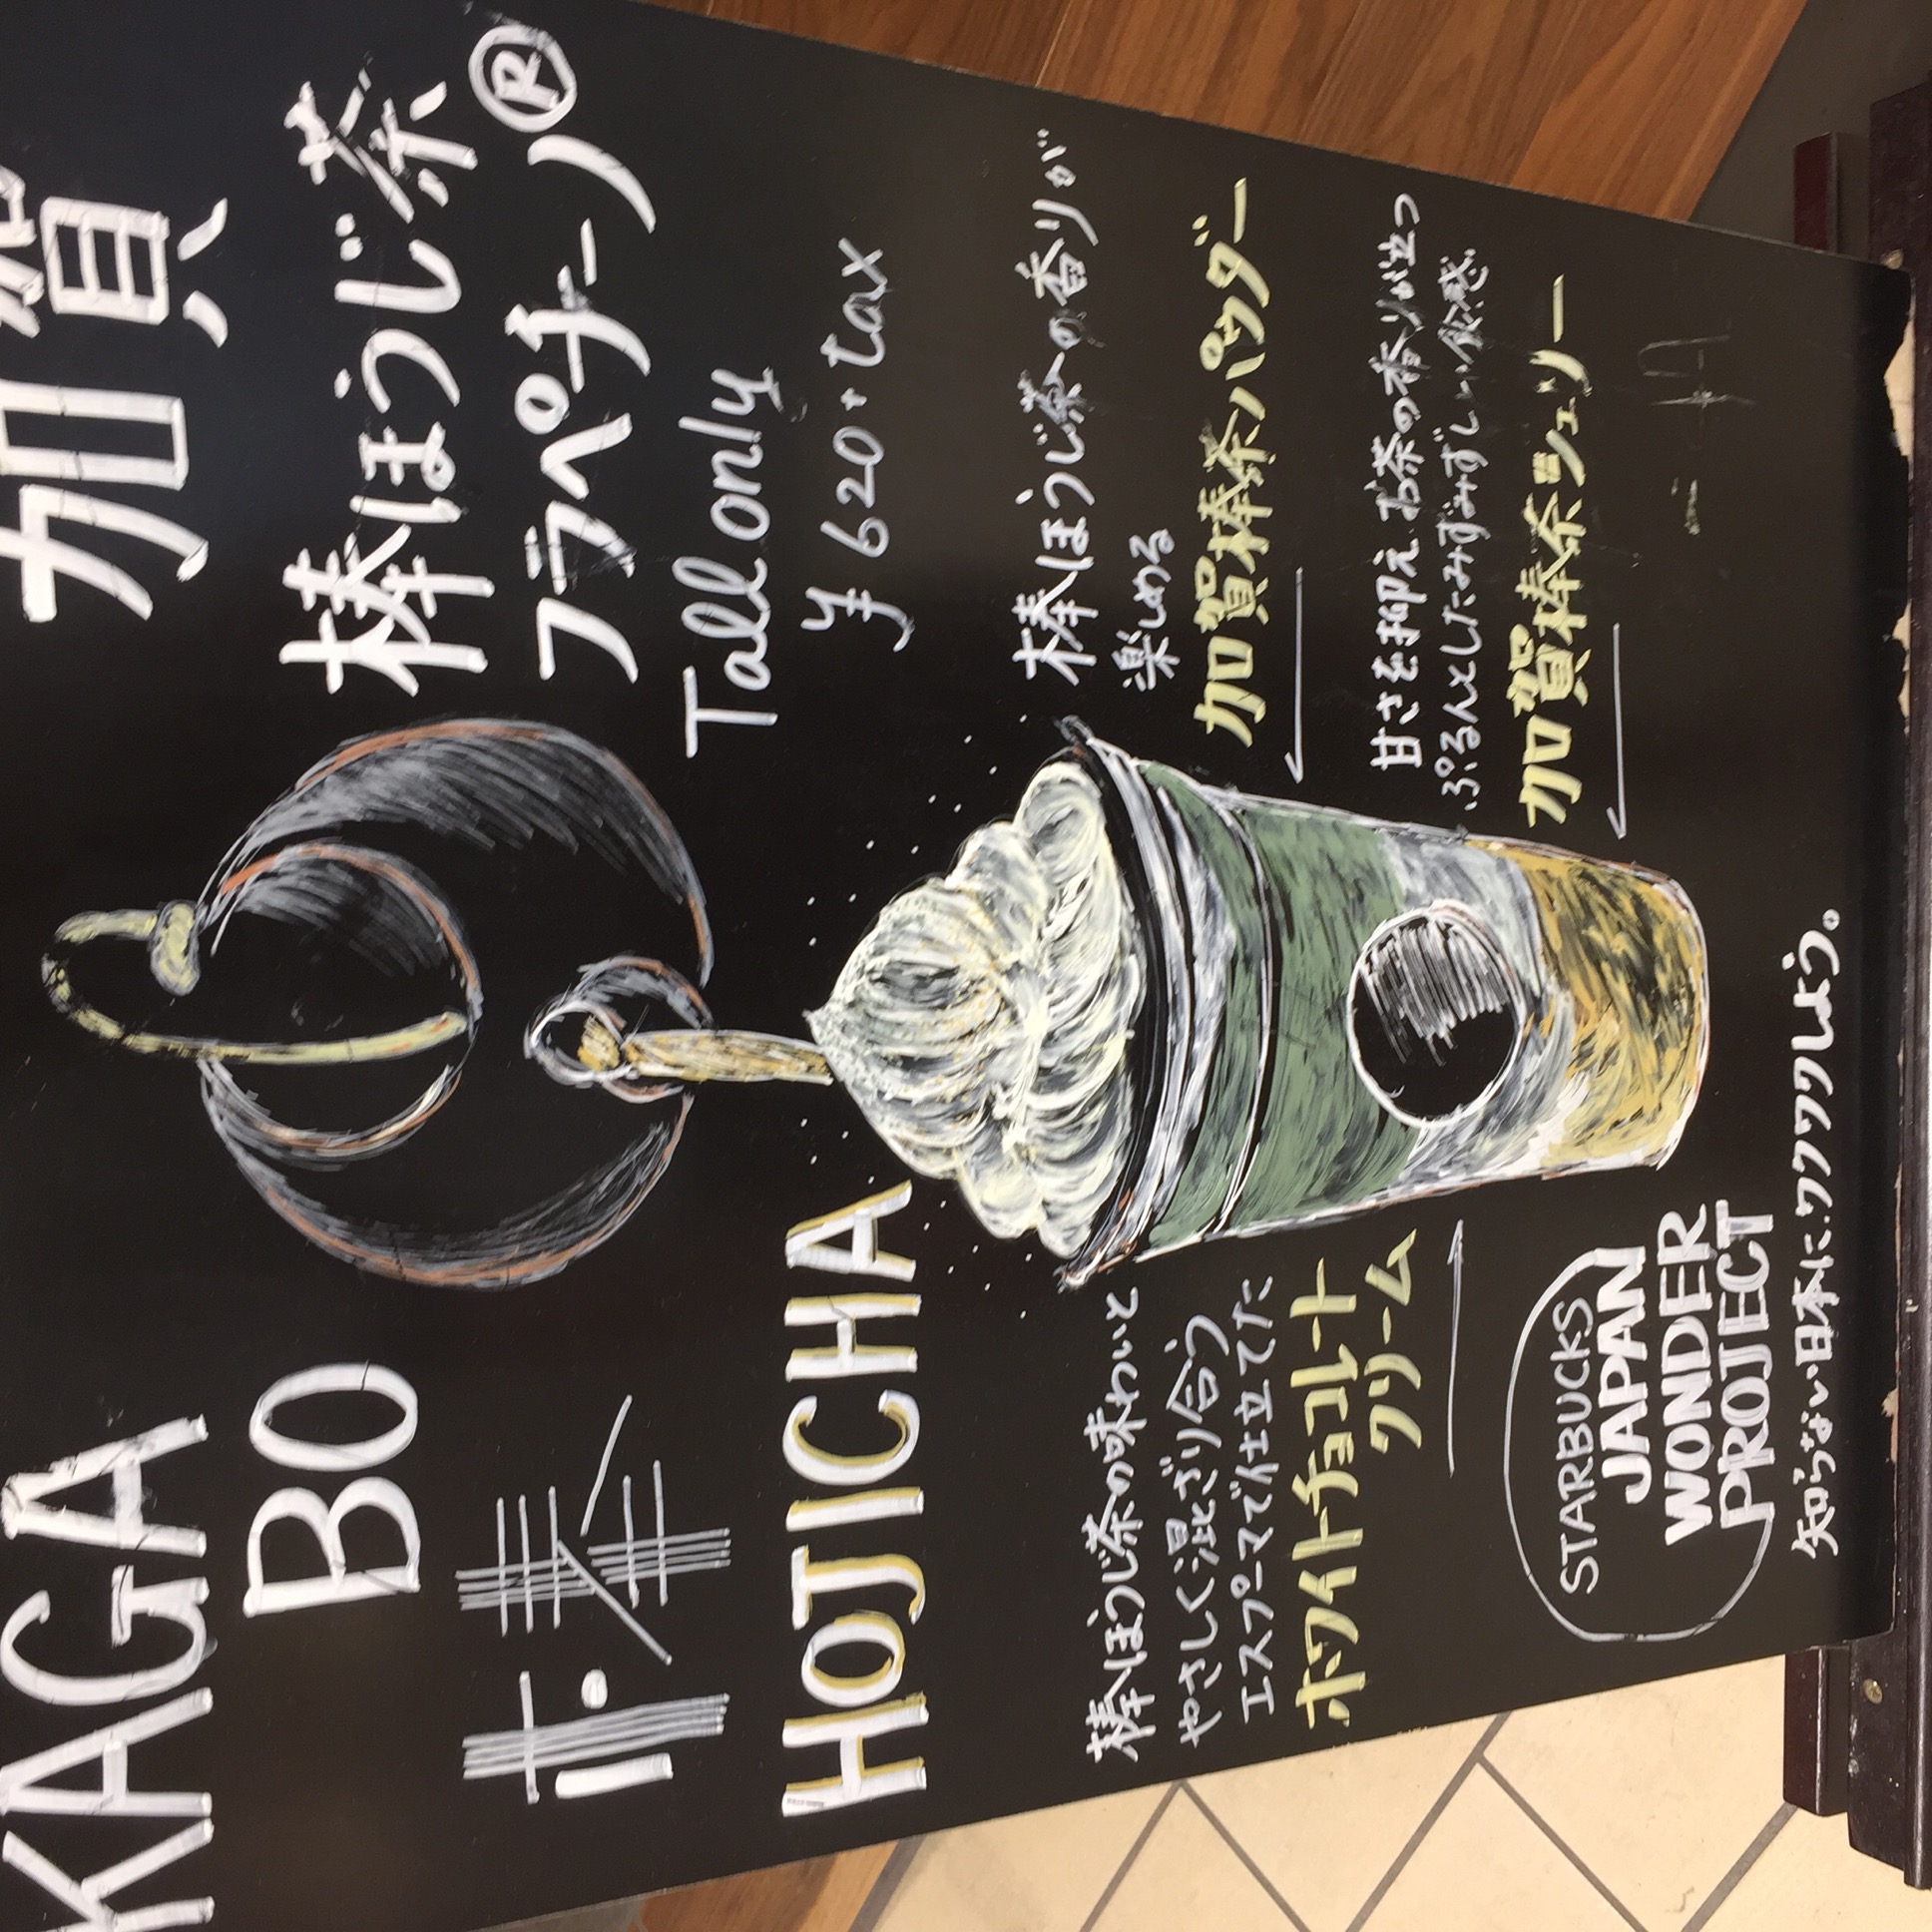 KAGA
BO
HOJICHA
加賀
棒ほうじ茶
フラペチーノ®
Tall only
¥620+tax
棒ほうじ茶の香りが
楽しめる
加賀棒茶パウダー
甘さを抑え、お茶の香りが立つ
ぷるんとしたみずみずしい食感
加賀棒茶ジェリー
棒ほうじ茶の味わいと
やさしく混ざり合う
エスプーマで仕立てた
ホワイトチョコレート
クリーム
STARBUCKS
JAPAN
WONDER
PROJECT
知らない日本に、ワクワクしよう。